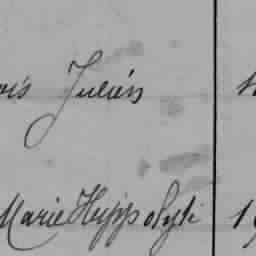 ois Julien
Marie Hyppolyte 19